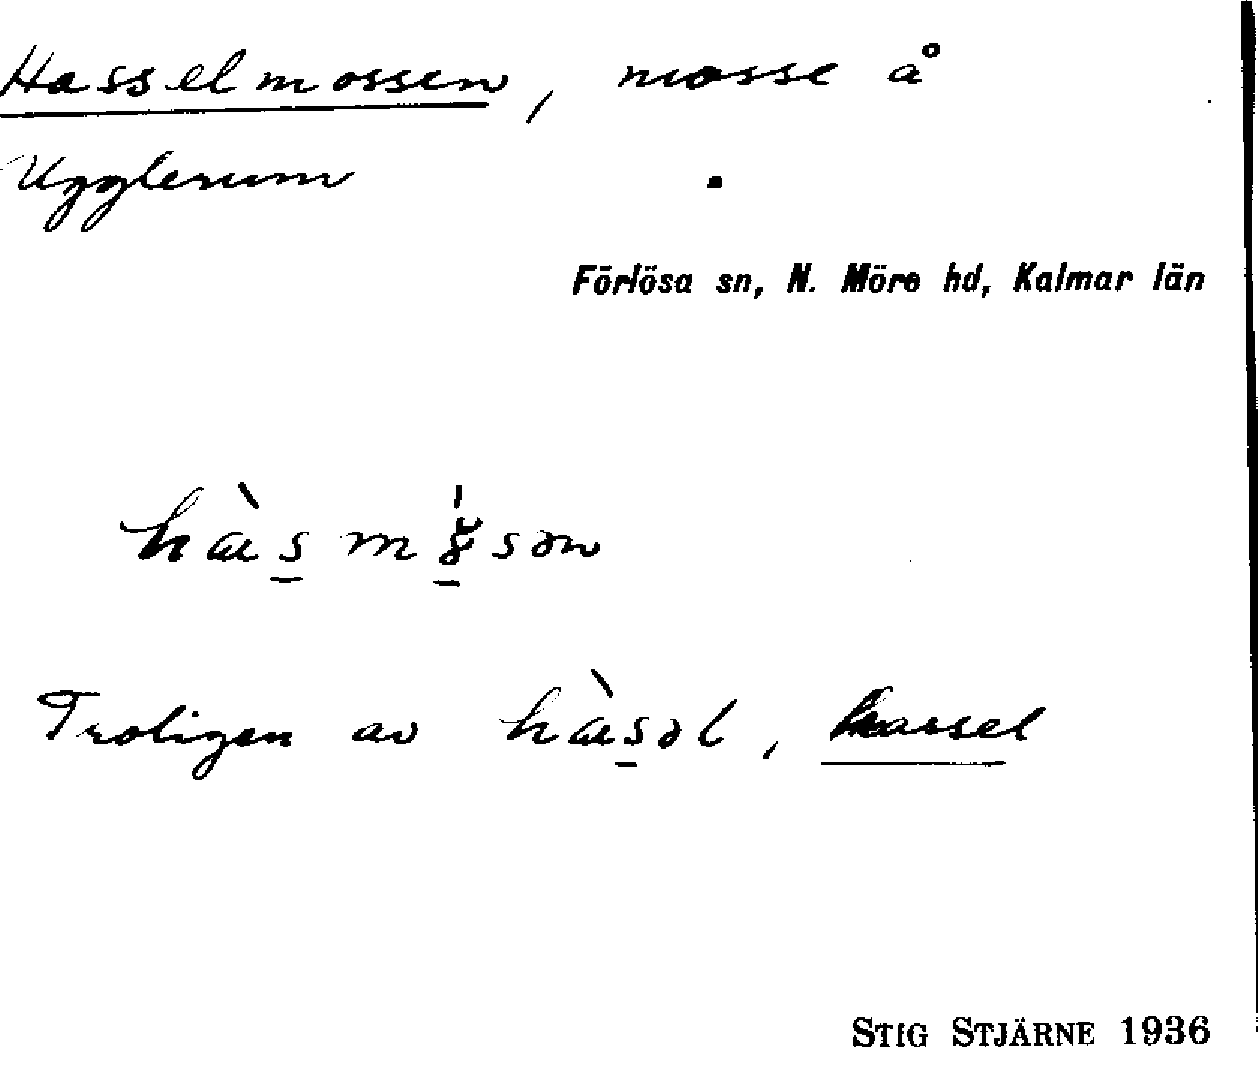 Hasselmossen, mosse å
Ugglerum
Förlösa sn, N. Möre hd, Kalmar län
Troligen av hàsəl, hassel
STIG STJÄRNE 1936